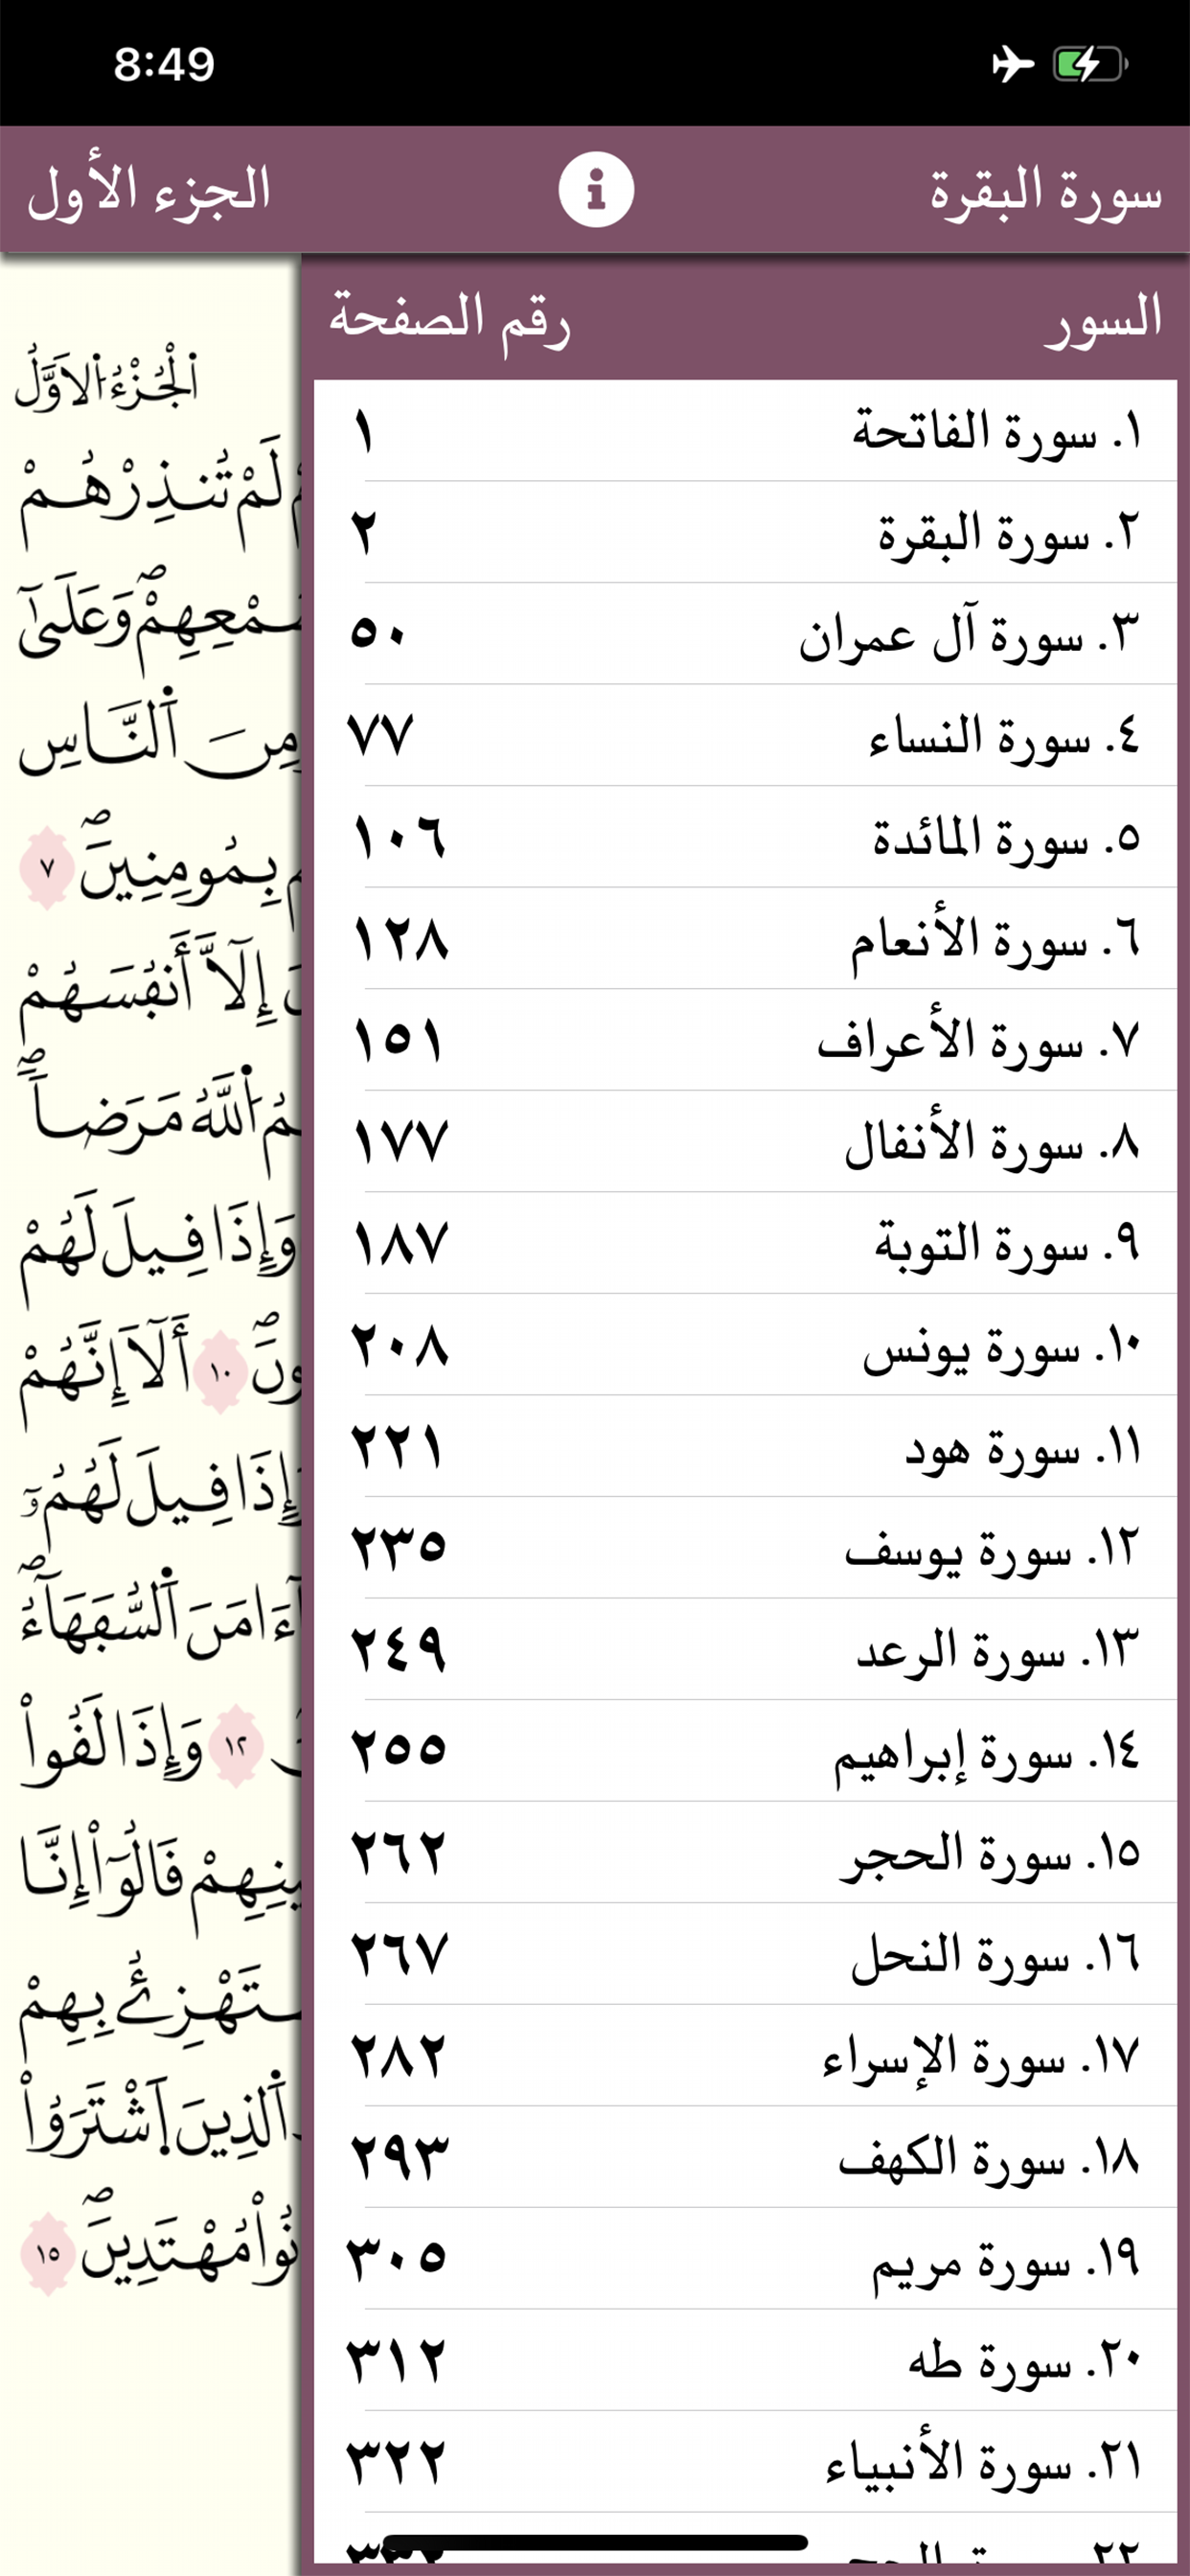 8:49
سورة البقرة
الجزء الأول
السور رقم الصفحة
١. سورة الفاتحة ١
٢. سورة البقرة ٢
٣. سورة آل عمران ٥٠
٤. سورة النساء ٧٧
٥. سورة المائدة ١٠٦
٦. سورة الأنعام ١٢٨
٧. سورة الأعراف ١٥١
٨. سورة الأنفال ١٧٧
٩. سورة التوبة ١٨٧
١٠. سورة يونس ٢٠٨
١١. سورة هود ٢٢١
١٢. سورة يوسف ٢٣٥
١٣. سورة الرعد ٢٤٩
١٤. سورة إبراهيم ٢٥٥
١٥. سورة الحجر ٢٦٢
١٦. سورة النحل ٢٦٧
١٧. سورة الإسراء ٢٨٢
١٨. سورة الكهف ٢٩٣
١٩. سورة مريم ٣٠٥
٢٠. سورة طه ٣١٢
٢١. سورة الأنبياء ٣٢٢
اَ۬لْجُزْءُ اُ۬لَاوَّلُ
لَمْ تُنذِرْهُمْ
وَعَلَىٰٓ
مِنَ اَ۬لنَّاسِ
بِمُومِنِينَۖ ٧
إِلَّآ أَنفُسَهُمْ
اُ۬للَّهُ مَرَضاٗۖ
وَإِذَا قِيلَ لَهُمْ
١٠ أَلَآ إِنَّهُمْ
قِيلَ لَهُمُۥٓ
ءَامَنَ اَ۬لسُّفَهَآءُۖ
١٢ وَإِذَا لَقُواْ
قَالُوٓاْ إِنَّا
بِهِمْ
اَ۬لذِينَ اَ۪شْتَرَوُاْ
مُهْتَدِينَۖ ١٥